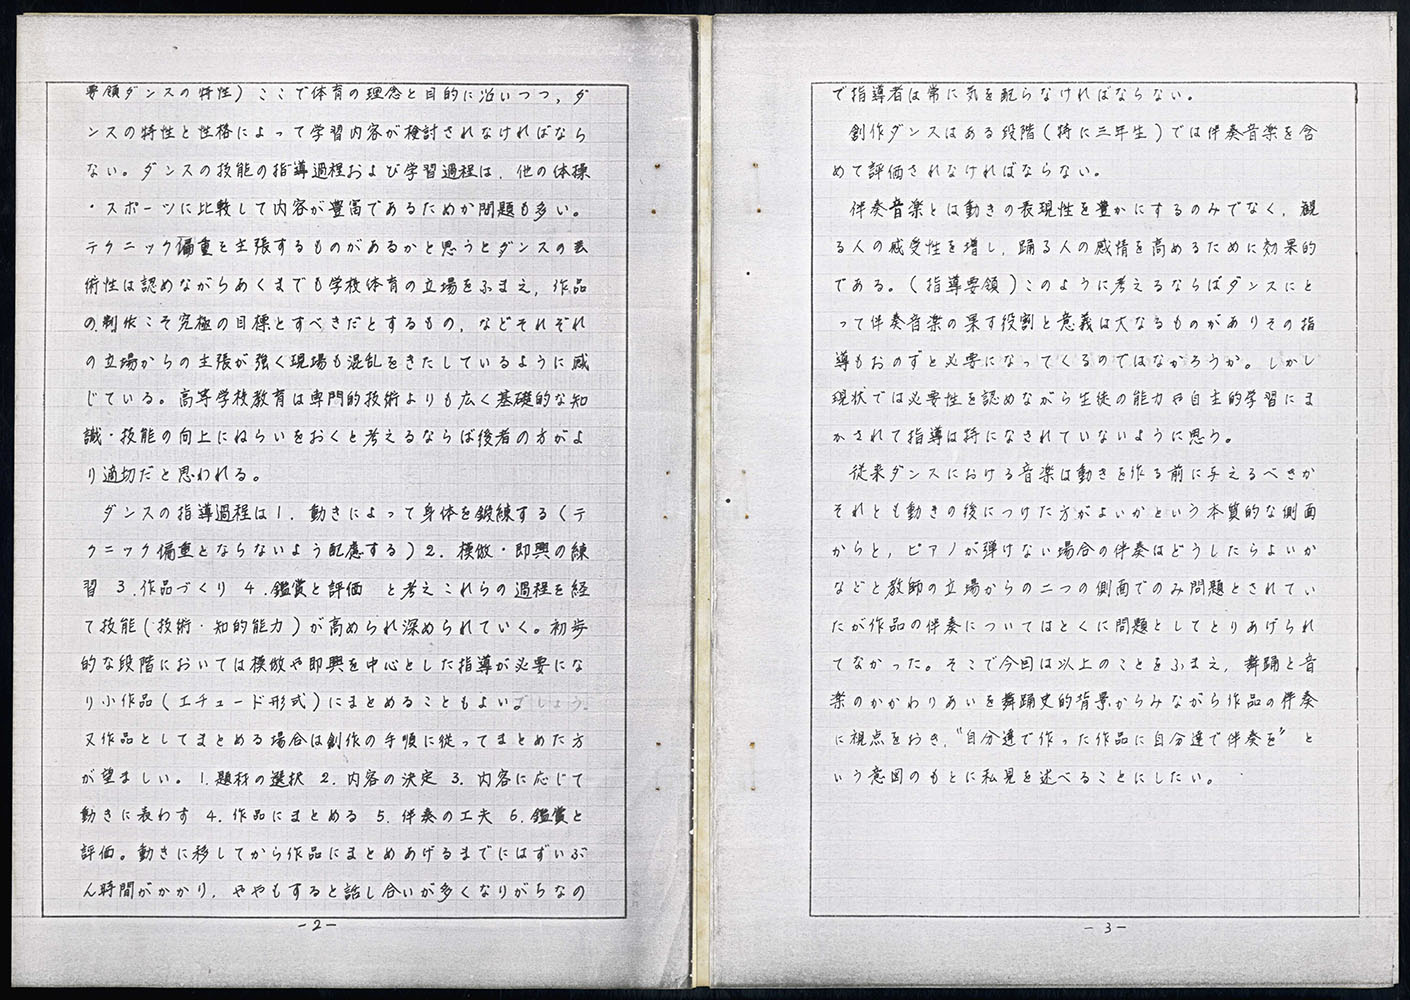 要領ダンスの特性）ここで体育の理念と目的に沿いつつ，ダ
ンスの特性と性格によって学習内容が検討されなければなら
ない。ダンスの技能の指導過程および学習過程は，他の体操
・スポーツに比較して内容が豊富であるためか問題も多い。
テクニック偏重を主張するものがあるかと思うとダンスの芸
術性は認めながらあくまでも学校体育の立場をふまえ，作品
の制作こそ究極の目標とすべきだとするもの，などそれぞれ
の立場からの主張が強く現場も混乱をきたしているように感
じている。高等学校教育は専門的技術よりも広く基礎的な知
識・技能の向上にねらいをおくと考えるならば後者の方がよ
り適切だと思われる。
ダンスの指導過程は1．動きによって身体を鍛練する（テ
クニック偏重とならないよう配慮する）2．模倣・即興の練
習 3．作品づくり 4．鑑賞と評価 と考えこれらの過程を経
て技能（技術・知的能力）が高められ深められていく。初歩
的な段階においては模倣や即興を中心とした指導が必要にな
り小作品（エチュード形式）にまとめることもよい。
又作品としてまとめる場合は創作の手順に従ってまとめた方
が望ましい。1．題材の選択 2．内容の決定 3．内容に応じて
動きに表わす 4．作品にまとめる 5．伴奏の工夫 6．鑑賞と
評価。動きに移してから作品にまとめあげるまでにはずいぶ
ん時間がかかり，ややもすると話し合いが多くなりがちなの
－2－
で指導者は常に気を配らなければならない。
創作ダンスはある段階（特に三年生）では伴奏音楽を含
めて評価されなければならない。
伴奏音楽とは動きの表現性を豊かにするのみでなく，観
る人の感受性を増し，踊る人の感情を高めるために効果的
である。（指導要領）このように考えるならばダンスにと
って伴奏音楽の果す役割と意義は大なるものがありその指
導もおのずと必要になってくるのではなかろうか。しかし
現状では必要性を認めながら生徒の能力や自主的学習にま
かされて指導は特になされていないように思う。
従来ダンスにおける音楽は動きを作る前に与えるべきか
それとも動きの後につけた方がよいかという本質的な側面
からと，ピアノが弾けない場合の伴奏はどうしたらよいか
などと教師の立場からの二つの側面でのみ問題とされてい
たが作品の伴奏についてはとくに問題としてとりあげられ
てなかった。そこで今回は以上のことをふまえ，舞踊と音
楽のかかわりあいを舞踊史的背景からみながら作品の伴奏
に視点をおき，〝自分達で作った作品に自分達で伴奏を〞と
いう意図のもとに私見を述べることにしたい。
－3－